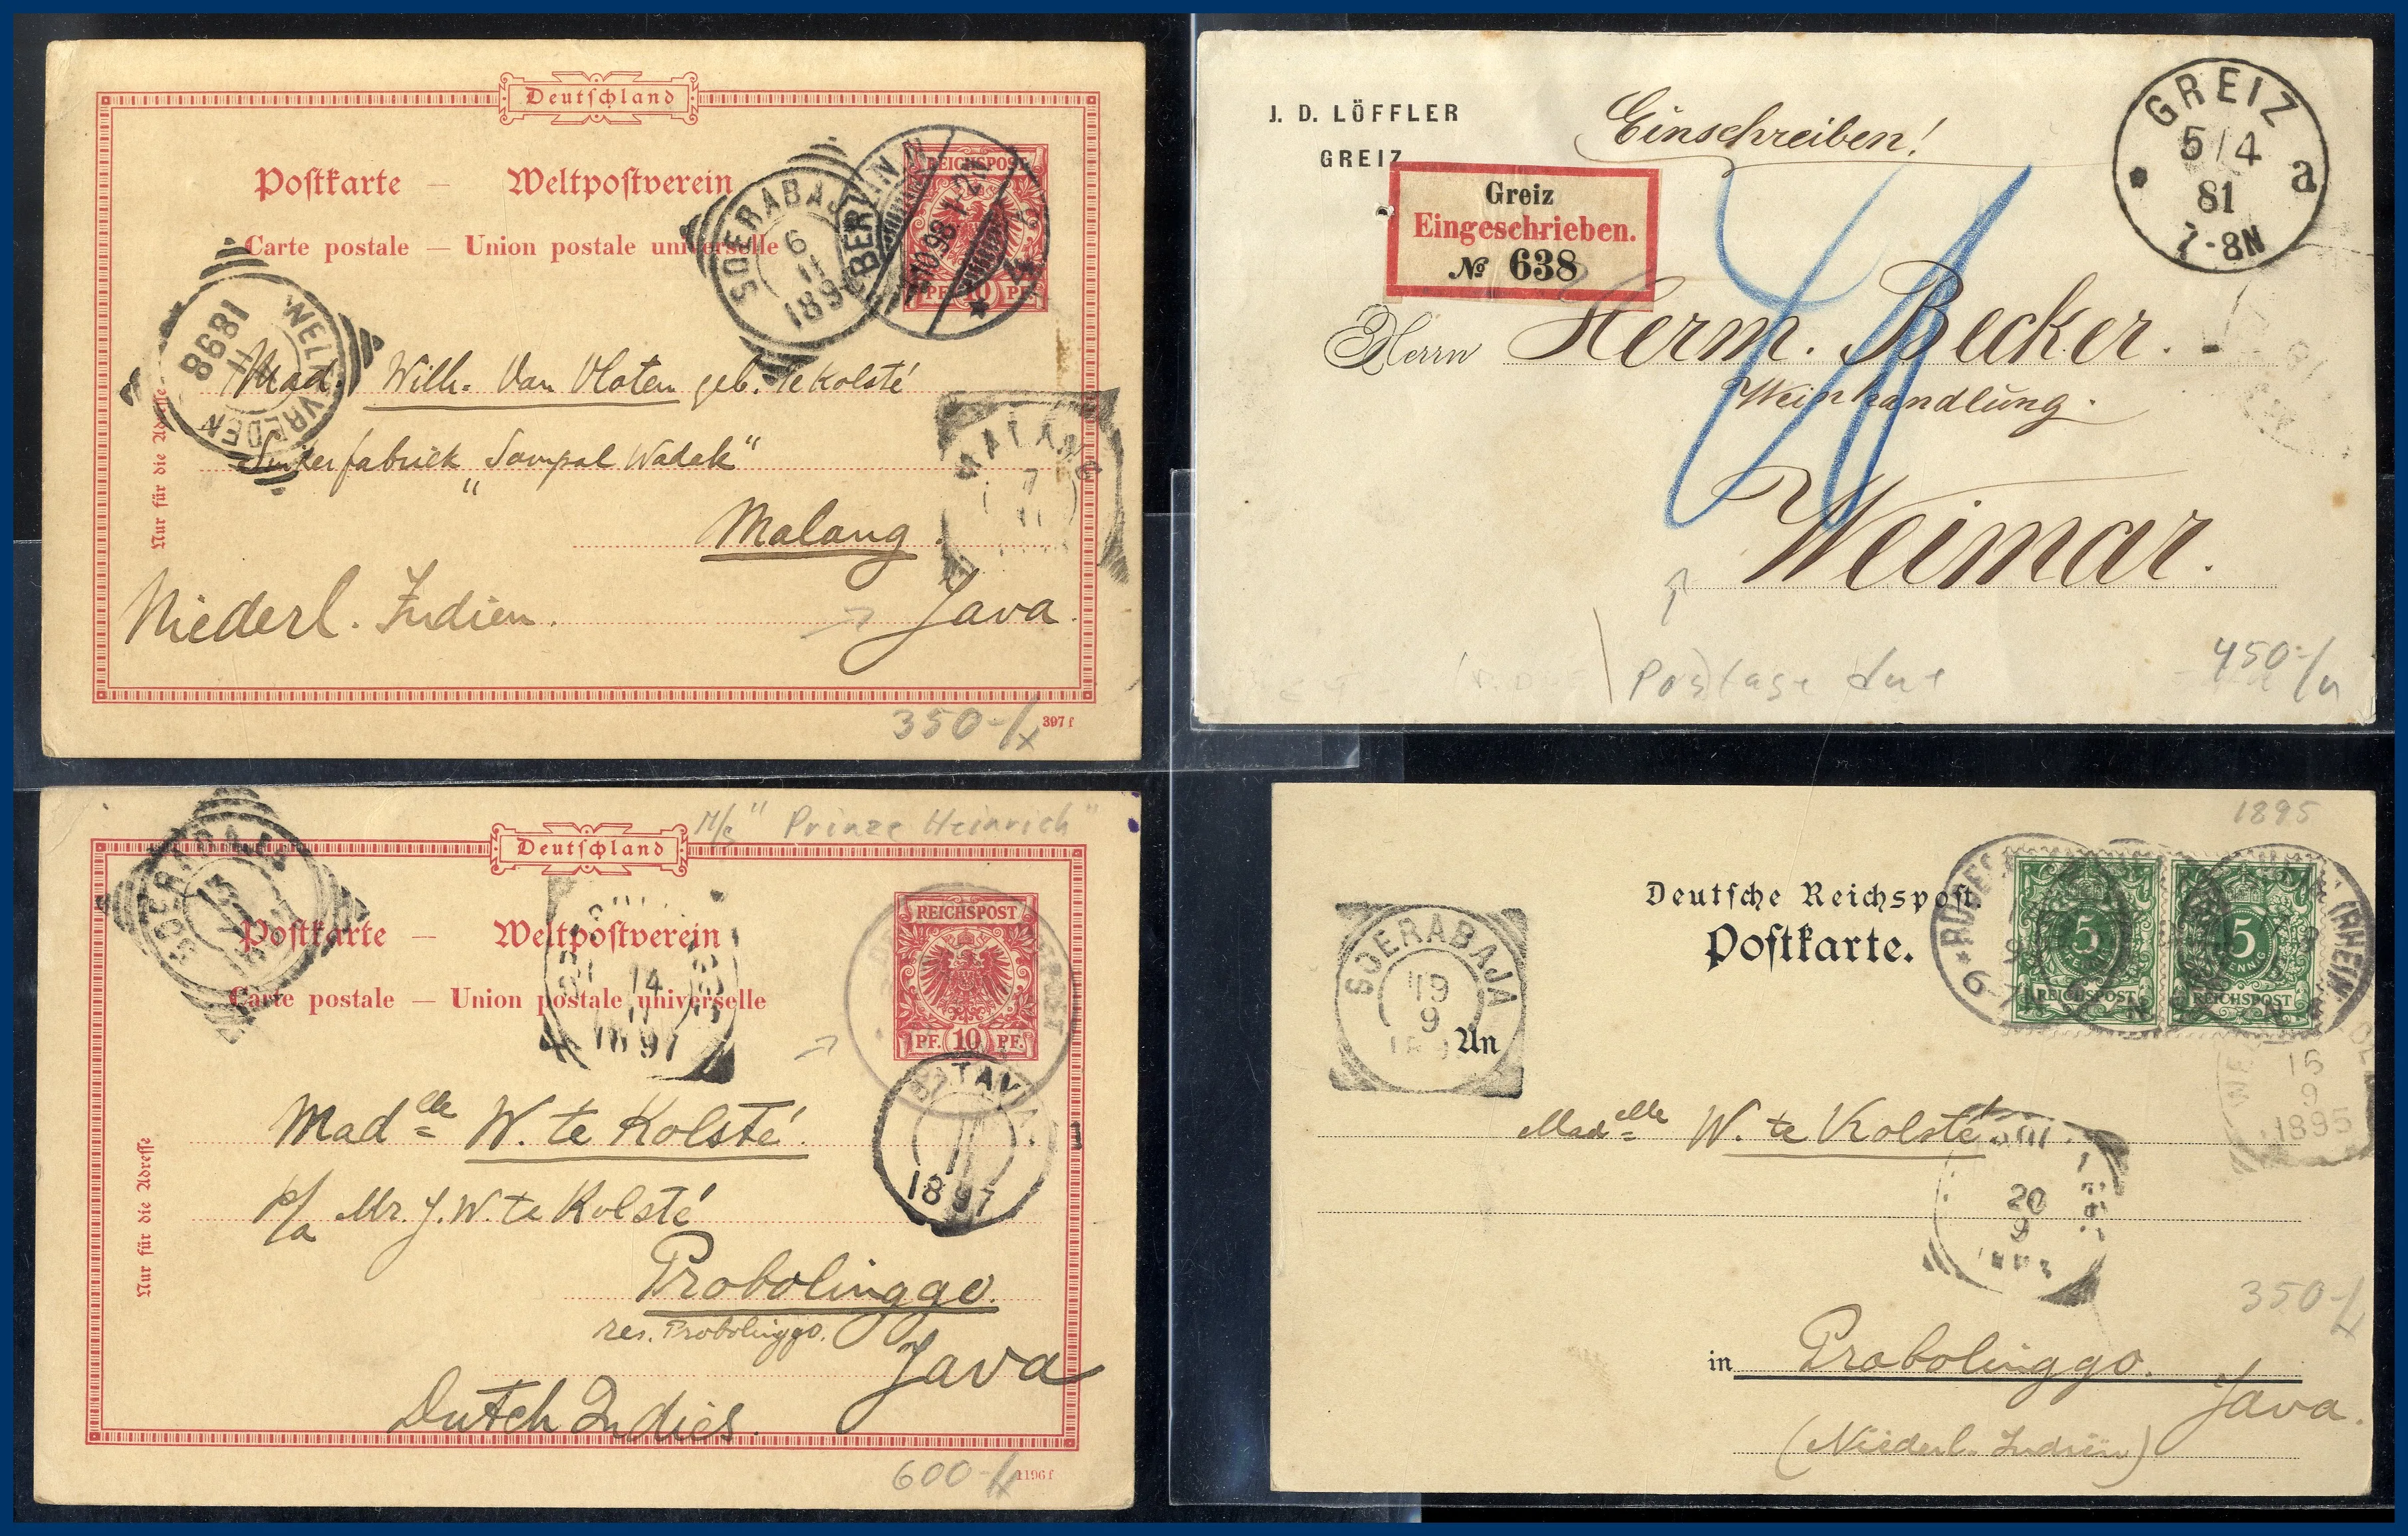 Deutschland
Postkarte — Weltpostverein
Carte postale — Union postale universelle
REICHSPOST
10 PF.
SOERABAJA
6
11
189
BERLIN N
10.98.1-2N.
4
WELTEVREDEN
1898
Nur für die Adresse
Mad. Wilh. Van Vloten geb. te Kolsté
Suikerfabriek "Sempal Wadak"
MALANG
7
11
Malang.
Niederl. Indien.
Java.
350-/x
397 f
J. D. LÖFFLER
GREIZ
Einschreiben!
GREIZ
5/4
81
7-8N
a
Greiz
Eingeschrieben.
№ 638
Herrn Herm. Becker.
Weinhandlung.
Weimar.
Postage due
450-/n
M/s "Prinze Heinrich"
Deutschland
Postkarte — Weltpostverein
Carte postale — Union postale universelle
REICHSPOST
PF. 10 PF.
SOERABAJA
13
14
1897
BATAVIA
11
1897
Nur für die Adresse
Madelle W. te Kolsté.
p/a Mr. J. W. te Kolsté
Probolinggo.
res. Probolinggo.
Java
Dutch Indies.
600-/x
1196 f
1895
Deutsche Reichspost
Postkarte.
5
PFENNIG
REICHSPOST
5
PFENNIG
REICHSPOST
(RHEIN)
6-7N
SOERABAJA
19
9
An
WE
15
9
1895
Madelle W. te Kolsté.
20
9
350-/x
in Probolinggo.
Java.
(Niederl. Indien)